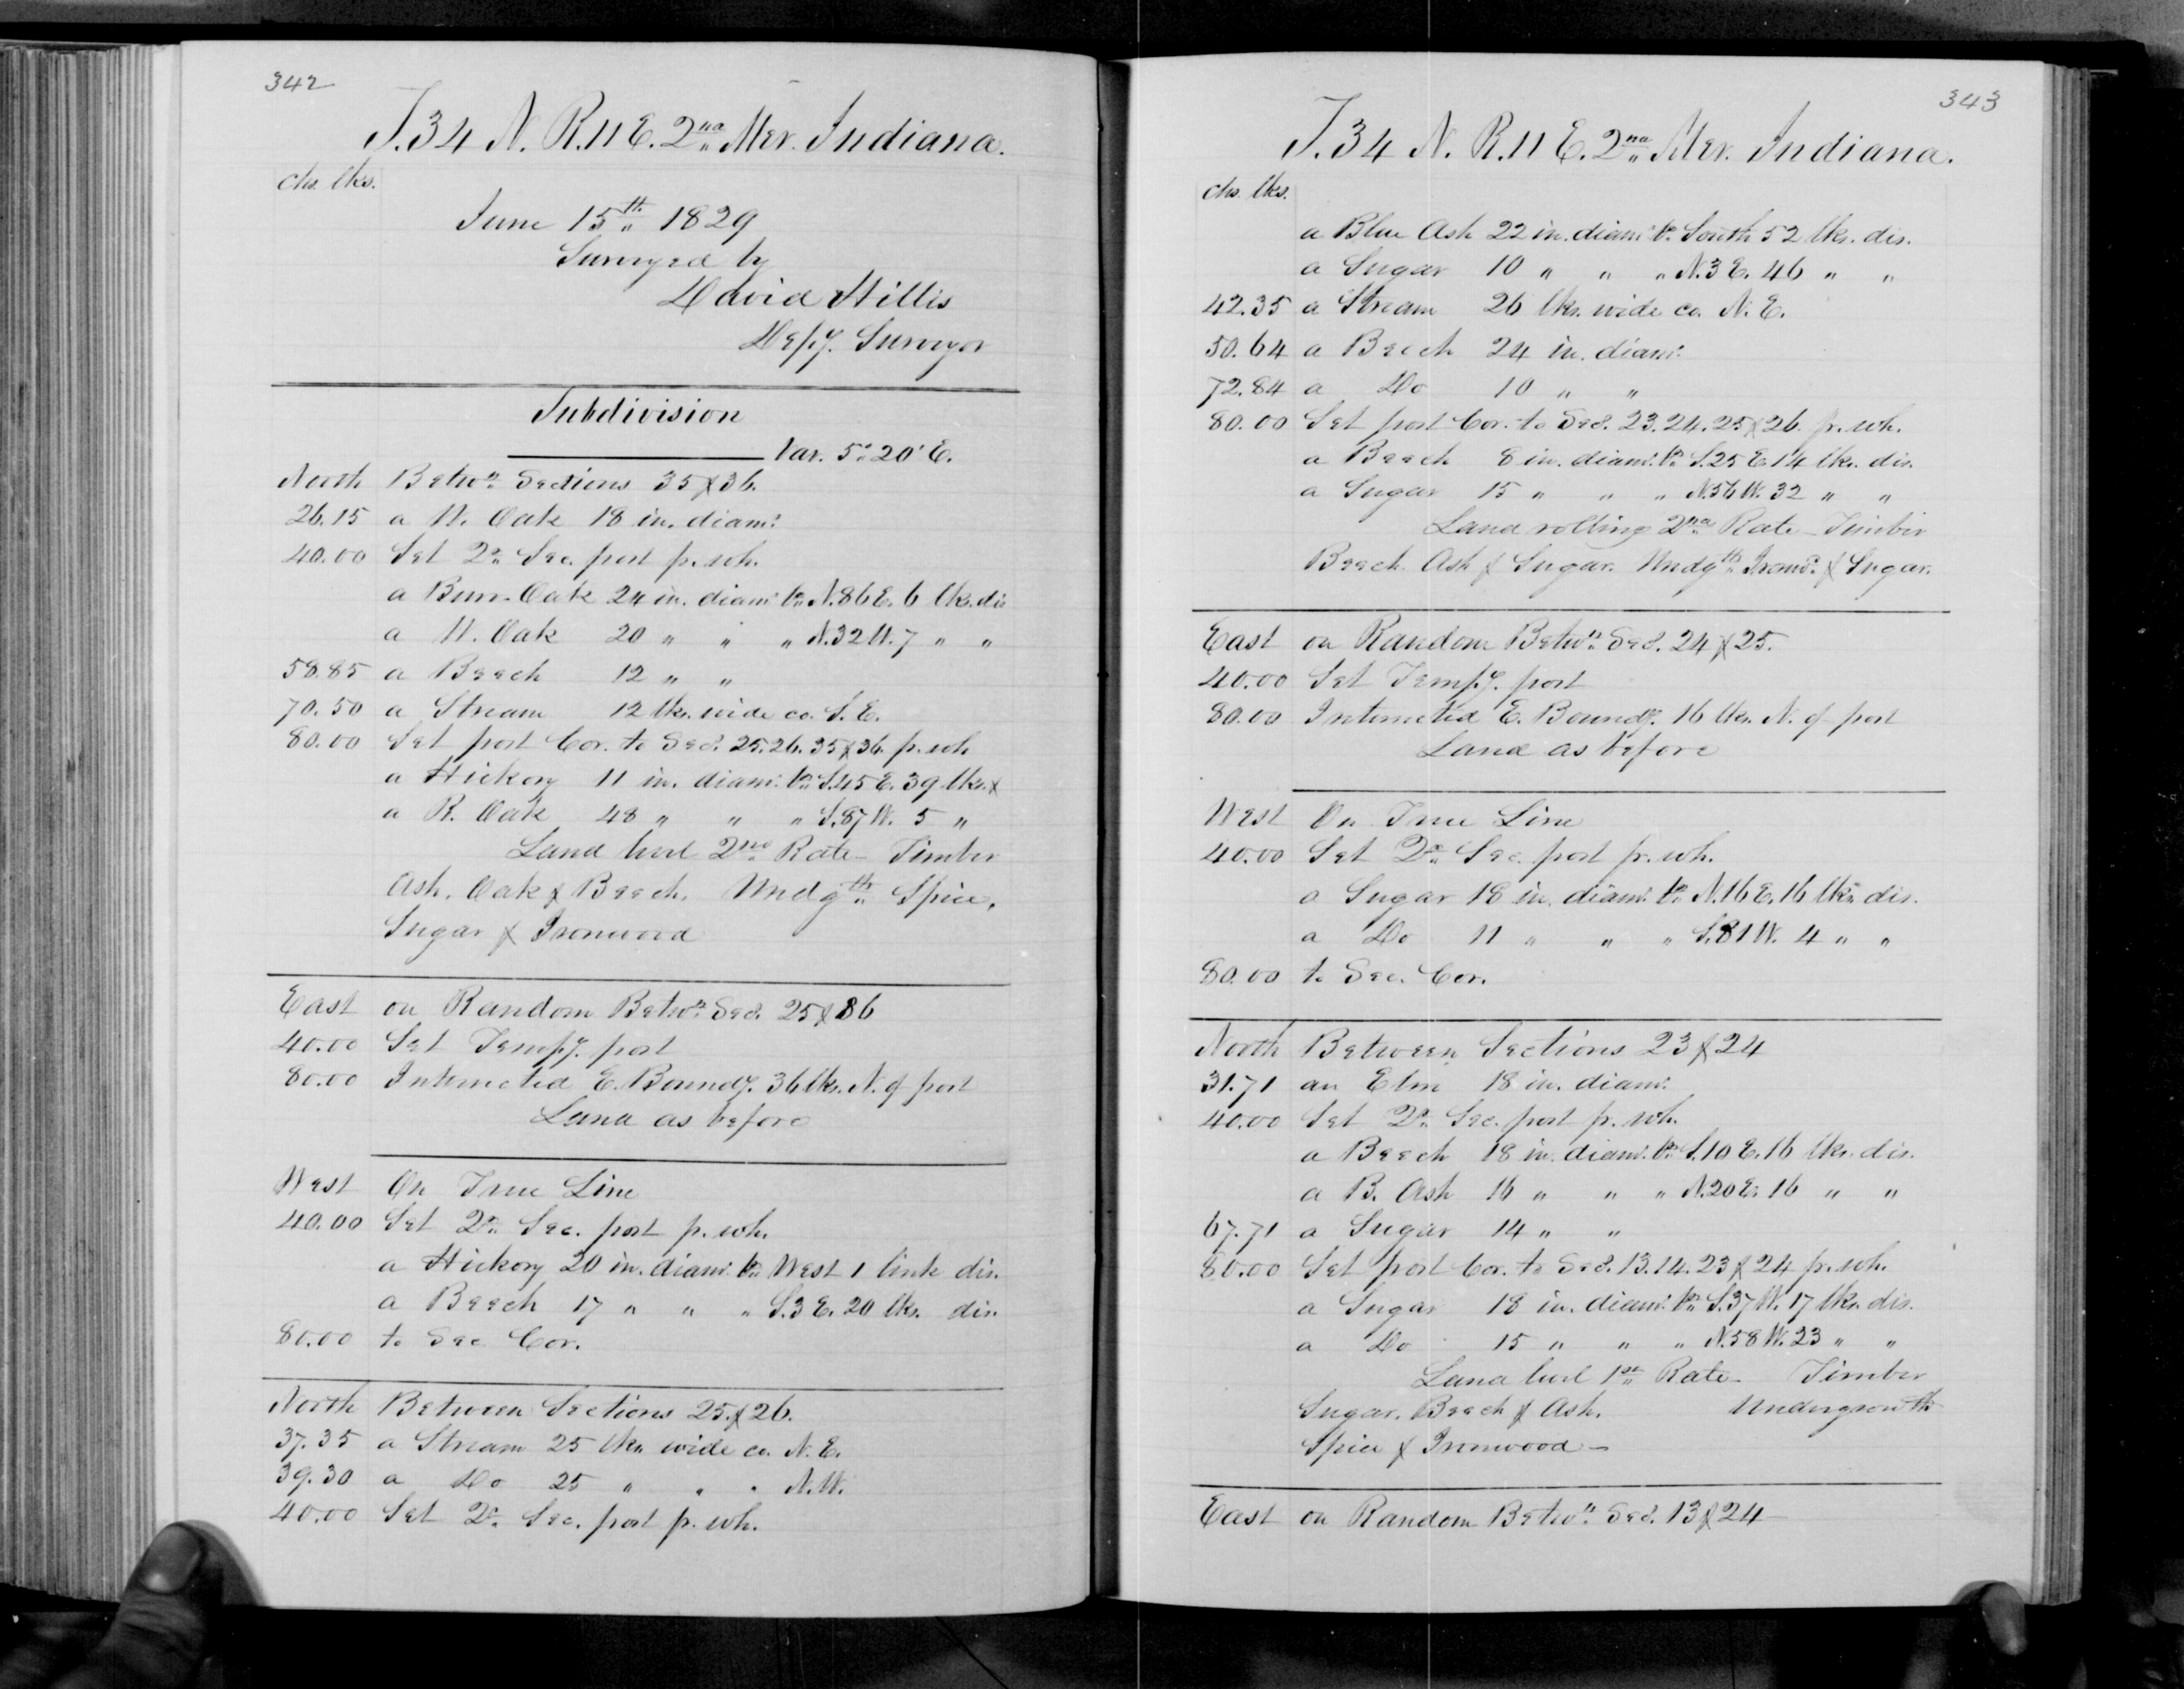 342
T. 34 N. R. 11 E. 2nd Mer. Indiana.
chs. lks.
June 15th 1829
Surveyed by
David Hillis
Depy. Surveyor
Subdivision
Var. 5° 20' E.
North Betwn Sections 35 & 36.
26.15 a W. Oak 18 in. diamr
40.00 Set Qr. Sec. post pr. wh.
a Burr Oak 24 in. diamr brs N. 86 E. 6 lks. dis
a W. Oak 20 " " " N. 32 W. 7 " "
58.85 a Beech 12 " "
70.50 a Stream 12 lks. wide co. S. E.
80.00 Set post Cor. to Secs. 25. 26. 35 & 36. pr. wh
a Hickory 11 in. diamr. brs S. 45 E. 39 lks. &
a R. Oak 48 " " " S. 87 W. 5 "
Land level 2nd Rate – Timber
Ash, Oak & Beech, Undgth Spice,
Sugar & Ironwood
East on Random Betwn Secs. 25 & 36
40.00 Set Tempy. post
80.00 Intersected E. Boundy. 36 lks. N. of post
Land as before
West On True Line
40.00 Set Qr. Sec. post pr. wh.
a Hickory 20 in. diamr. brs West 1 link dis.
a Beech 17 " " " S. 3 E. 20 lks. dis.
80.00 to Sec Cor.
North Between Sections 25. & 26.
37.35 a Stream 25 lks wide co. N. E.
39.30 a Do 25 " " " N. W.
40.00 Set Qr. Sec. post pr. wh.
343
T. 34 N. R. 11 E. 2nd Mer. Indiana.
chs. lks.
a Blue Ash 22 in. diamr brs South 52 lks. dis.
a Sugar 10 " " " N. 3 E. 46 " "
42.35 a Stream 26 lks. wide co. N. E.
50.64 a Beech 24 in. diamr.
72.84 a Do 10 " "
80.00 Set post Cor. to Secs. 23. 24. 25 & 26. pr. wh.
a Beech 8 in. diamr. brs S. 25 E. 14 lks. dis.
a Sugar 15 " " " N. 56 W. 32 " "
Land rolling 2nd Rate – Timber
Beech. Ash & Sugar. Undgth Ironwd. & Sugar.
East on Random Betwn Secs. 24 & 25.
40.00 Set Tempy. post
80.00 Intersected E. Boundy. 16 lks. N. of post
Land as before
West On True Line
40.00 Set Qr. Sec. post pr. wh.
a Sugar 18 in. diamr. brs N. 16 E. 16 lks dis.
a Do 11 " " " S. 81 W. 4 " "
80.00 to Sec. Cor.
North Between Sections 23 & 24
31.71 an Elm 18 in. diamr.
40.00 Set Qr. Sec. post pr. wh.
a Beech 18 in. diamr. brs S. 10 E. 16 lks. dis.
a B. Ash 16 " " " N. 20 E. 16 " "
67.71 a Sugar 14 " "
80.00 Set post Cor. to Secs. 13. 14. 23 & 24 pr. wh.
a Sugar 18 in. diamr. brs S. 37 W. 17 lks. dis.
a Do 15 " " " N. 58 W. 23 " "
Land level 1st Rate – Timber
Sugar. Beech & Ash. Undergrowth
Spice & Ironwood –
East on Random Betwn Secs. 13 & 24